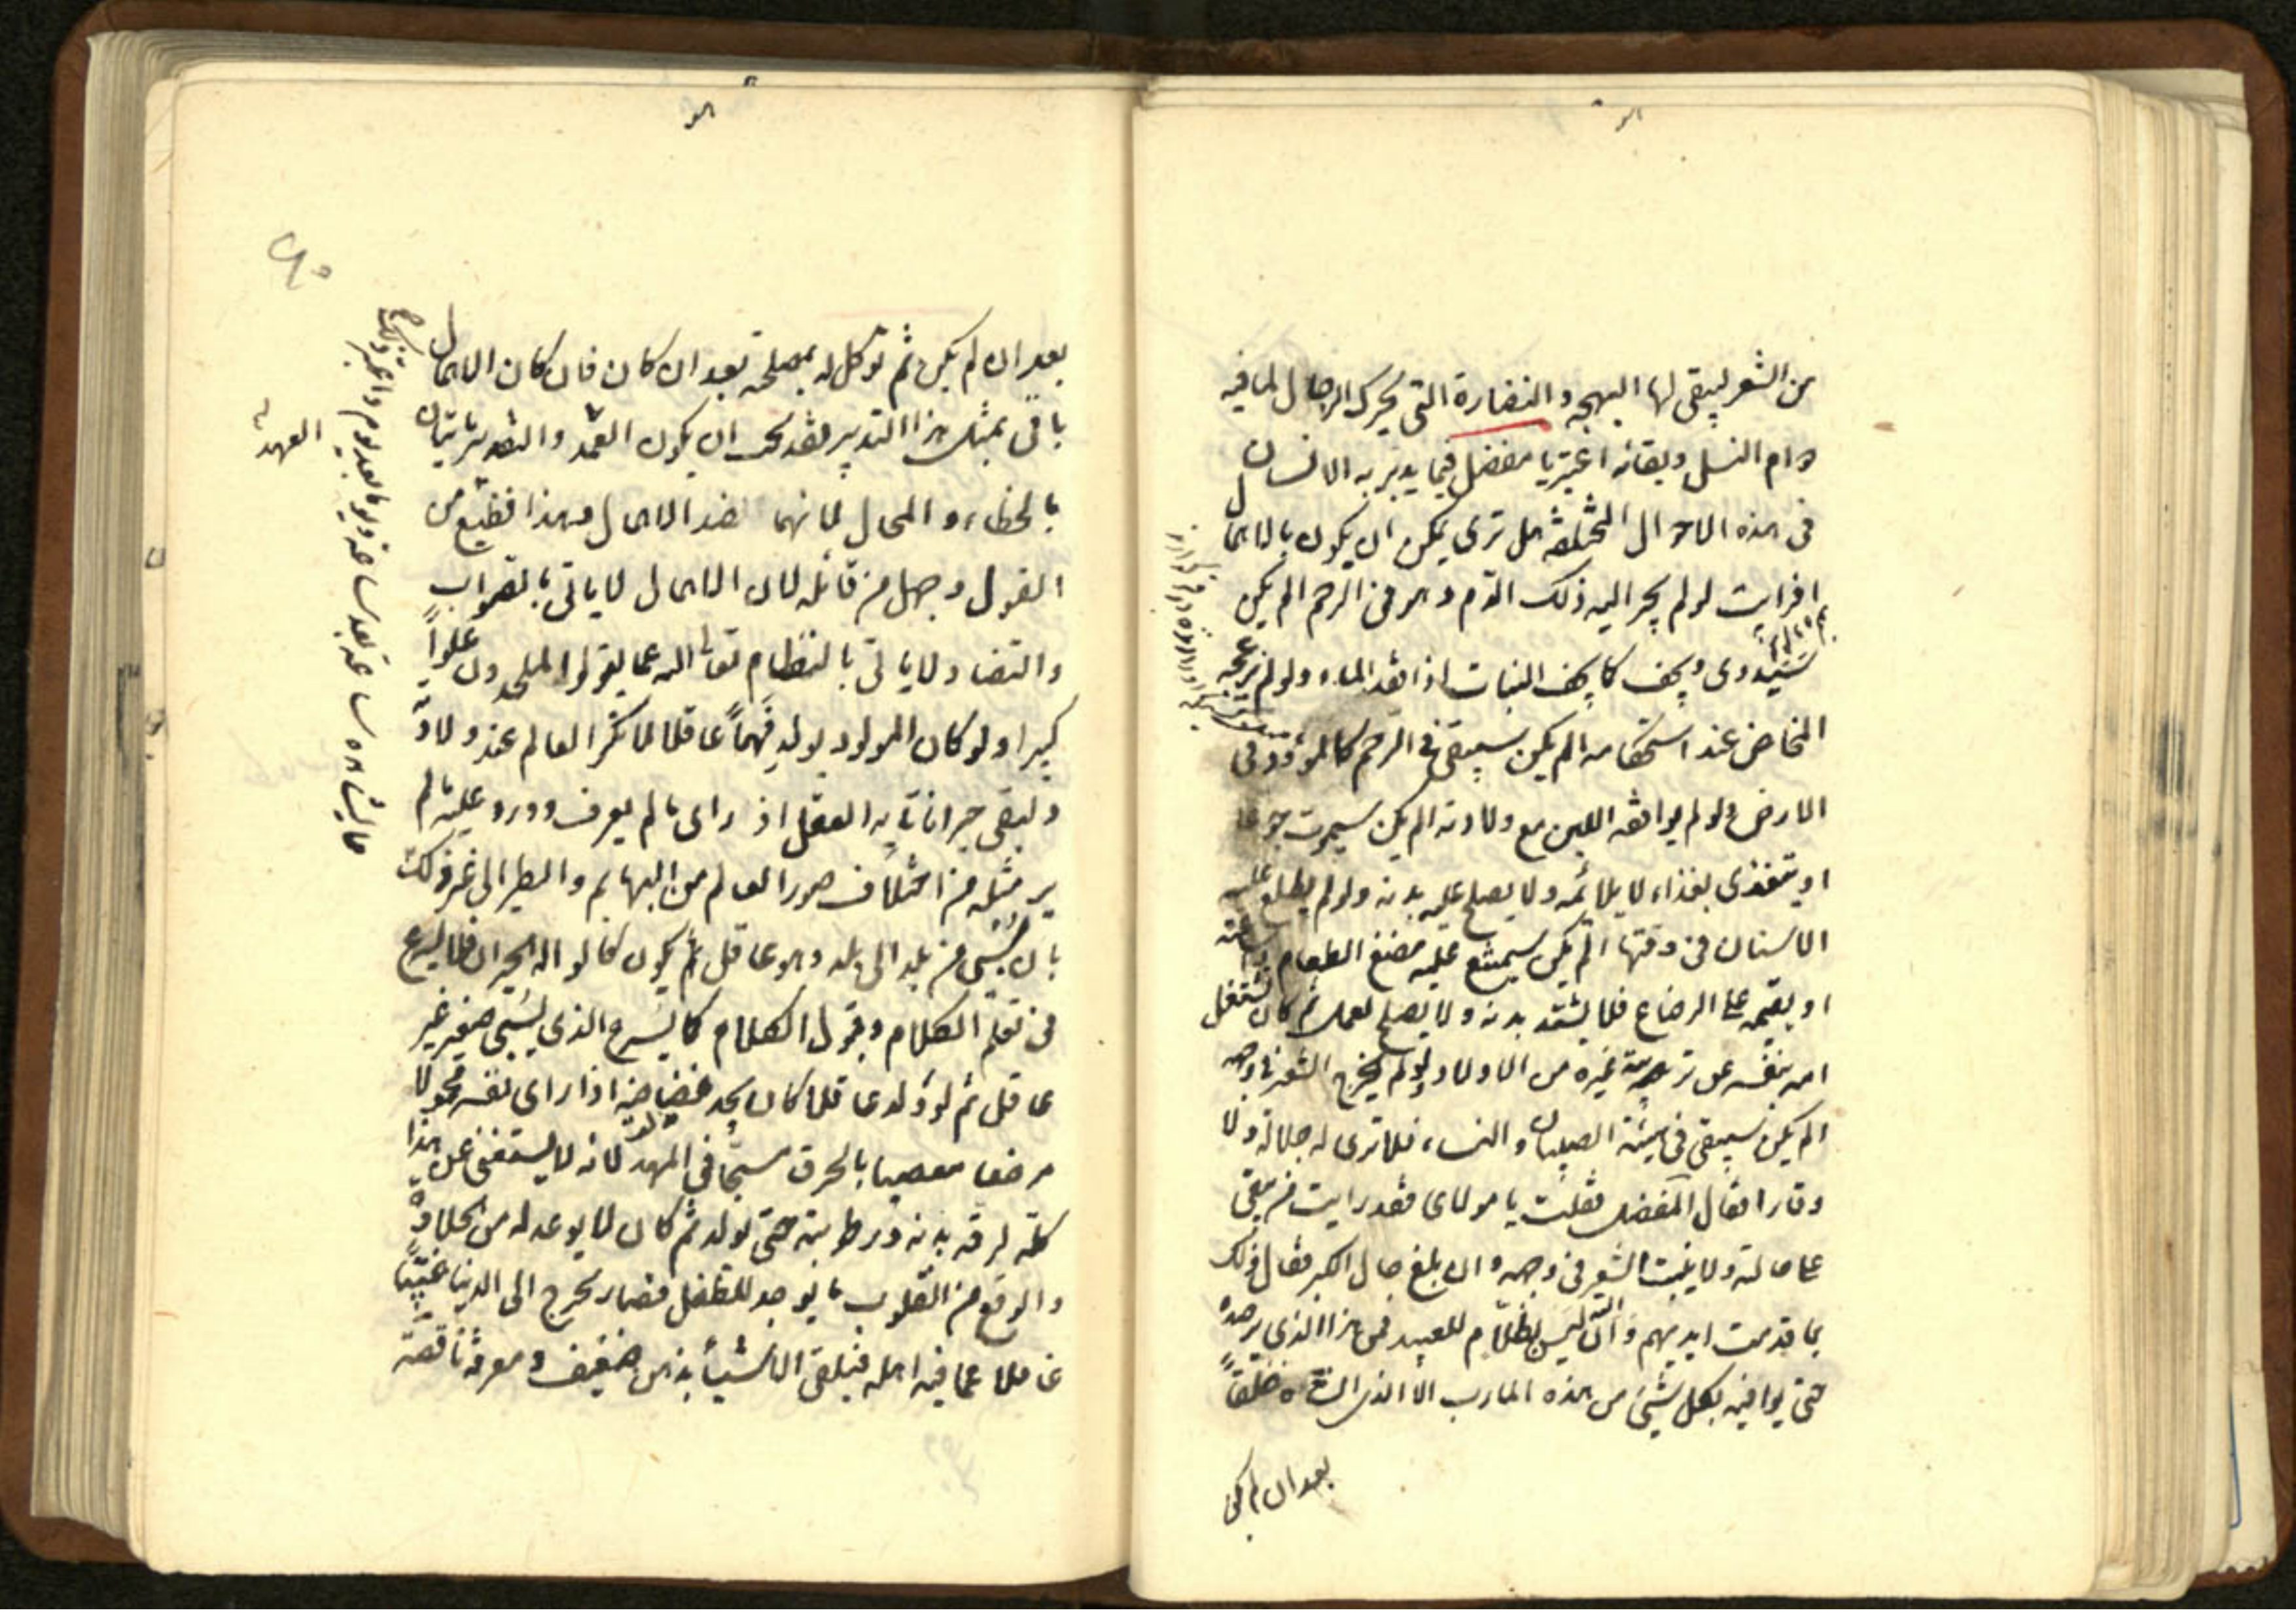 من الشعر ليبقى لها البهجه و النضارة التى تحرك الرجال لما فيه
دوام النسل وبقائه اعتبر يا مفضل فيما يدبر به الانسان
فى هذه الاحوال المختلفه هل ترى يمكن ان يكون بالاهمال
افرايت لو لم يجر اليه ذلك الدم وهو فى الرحم الم يكن
سيذوى ويجف كما يجف النبات اذا فقد الماء ولو لم يزعجه
المخاض عند استحكامه الم يكن سيبقى فى الرحم كالموؤد فى
الارض ولو لم يوافقه اللبن مع ولادته الم يكن سيموت جوعا
او يتغذى بغذاء لا يلائمه ولا يصلح عليه بدنه ولو لم يطلع عليه
الاسنان فى وقتها الم يكن سيمتنع عليه مضغ الطعام واساغته
او يقيمه على الرضاع فلا يشتد بدنه ولا يصلح لعمل ثم كان تشتغل
امه بنفسه عن تربية غيره من الاولاد ولو لم يخرج الشعر فى وجهه
الم يكن سيبقى فى هيئة الصبيان والنساء فلا ترى له جلالة ولا
وقارا فقال المفضل فقلت يا مولاى فقد رايت من يبقى
على حالته ولا ينبت الشعر فى وجهه وان بلغ حال الكبر فقال ذلك
بما قدمت ايديهم وان الله ليس بظلام للعبيد فمن هذا الذى يرصده
حتى يوافيه بكل شىء من هذه المارب الا الذى انشاه خلقا
بعد ان لم يكن
بعد ان لم يكن ثم توكل له بمصلحته بعد ان كان فان كان الاهمال
ياتى بمثل هذا التدبير فقد يجب ان يكون العمد والتقدير ياتيان
بالخطاء و المحال لانهما ضد الاهمال وهذا فظيع من
القول وجهل من قائله لان الاهمال لا ياتى بالصواب
والتضاد لا ياتى بالنظام تعالى الله عما يقول الملحدون علوا
كبيرا ولو كان المولود يولد فهما عاقلا لانكر العالم عند ولادته
ولبقى حيرانا تايه العقل اذ راى ما لم يعرف وورد عليه ما لم
ير مثله من اختلاف صور العالم من البهايم والطير الى غير ذلك
بان سبى من بلد الى بلد وهو عاقل ثم يكون كالواله الحيران فلا يسرع
فى تعلم الكلام وقبول الكلام كما يسرع الذى يسبى صغير غير
عاقل ثم لو ولد عاقلا كان يجد غضاضة اذا راى نفسه محمولا
مرضعا معصبا بالخرق مسجا فى المهد لانه لا يستغنى عن هذا
كله لرقه بدنه ورطوبته حتى يولد ثم كان لا يوجد له من الحلاوة
والوقع من القلوب ما يوجد للطفل فصار يخرج الى الدنيا غبيا
غافلا عما فيه اهله فيلقى الاشياء بذهن ضعيف ومعرفة ناقصه